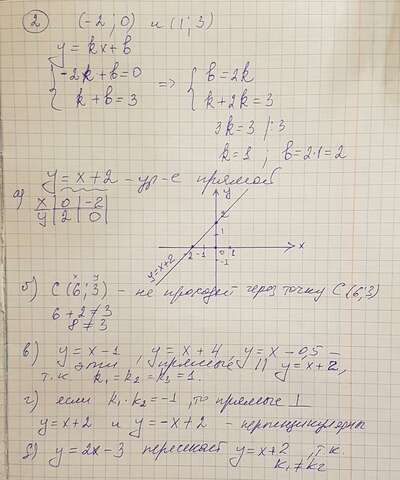 2 (-2; 0) и (1; 3)
y = kx + b
{ -2k + b = 0 => { b = 2k
{ k + b = 3 { k + 2k = 3
3k = 3 /:3
k = 1 ; b = 2·1 = 2
y = x + 2 - ур-е прямой
а) x | 0 | -2
y | 2 | 0
y
2
1
y = x+2
-2 -1 0 1 x
-1
x y
б) C (6; 3) - не проходит через точку C (6; 3)
6 + 2 ≠ 3
8 ≠ 3
в) y = x - 1 , y = x + 4, y = x - 0,5 -
эти прямые || y = x + 2,
т.к. k₁ = k₂ = k₃ = 1.
г) если k₁ · k₂ = -1, то прямые ⊥
y = x + 2 и y = -x + 2 - перпендикулярны
д) y = 2x - 3 пересекает y = x + 2, т.к.
k₁ ≠ k₂